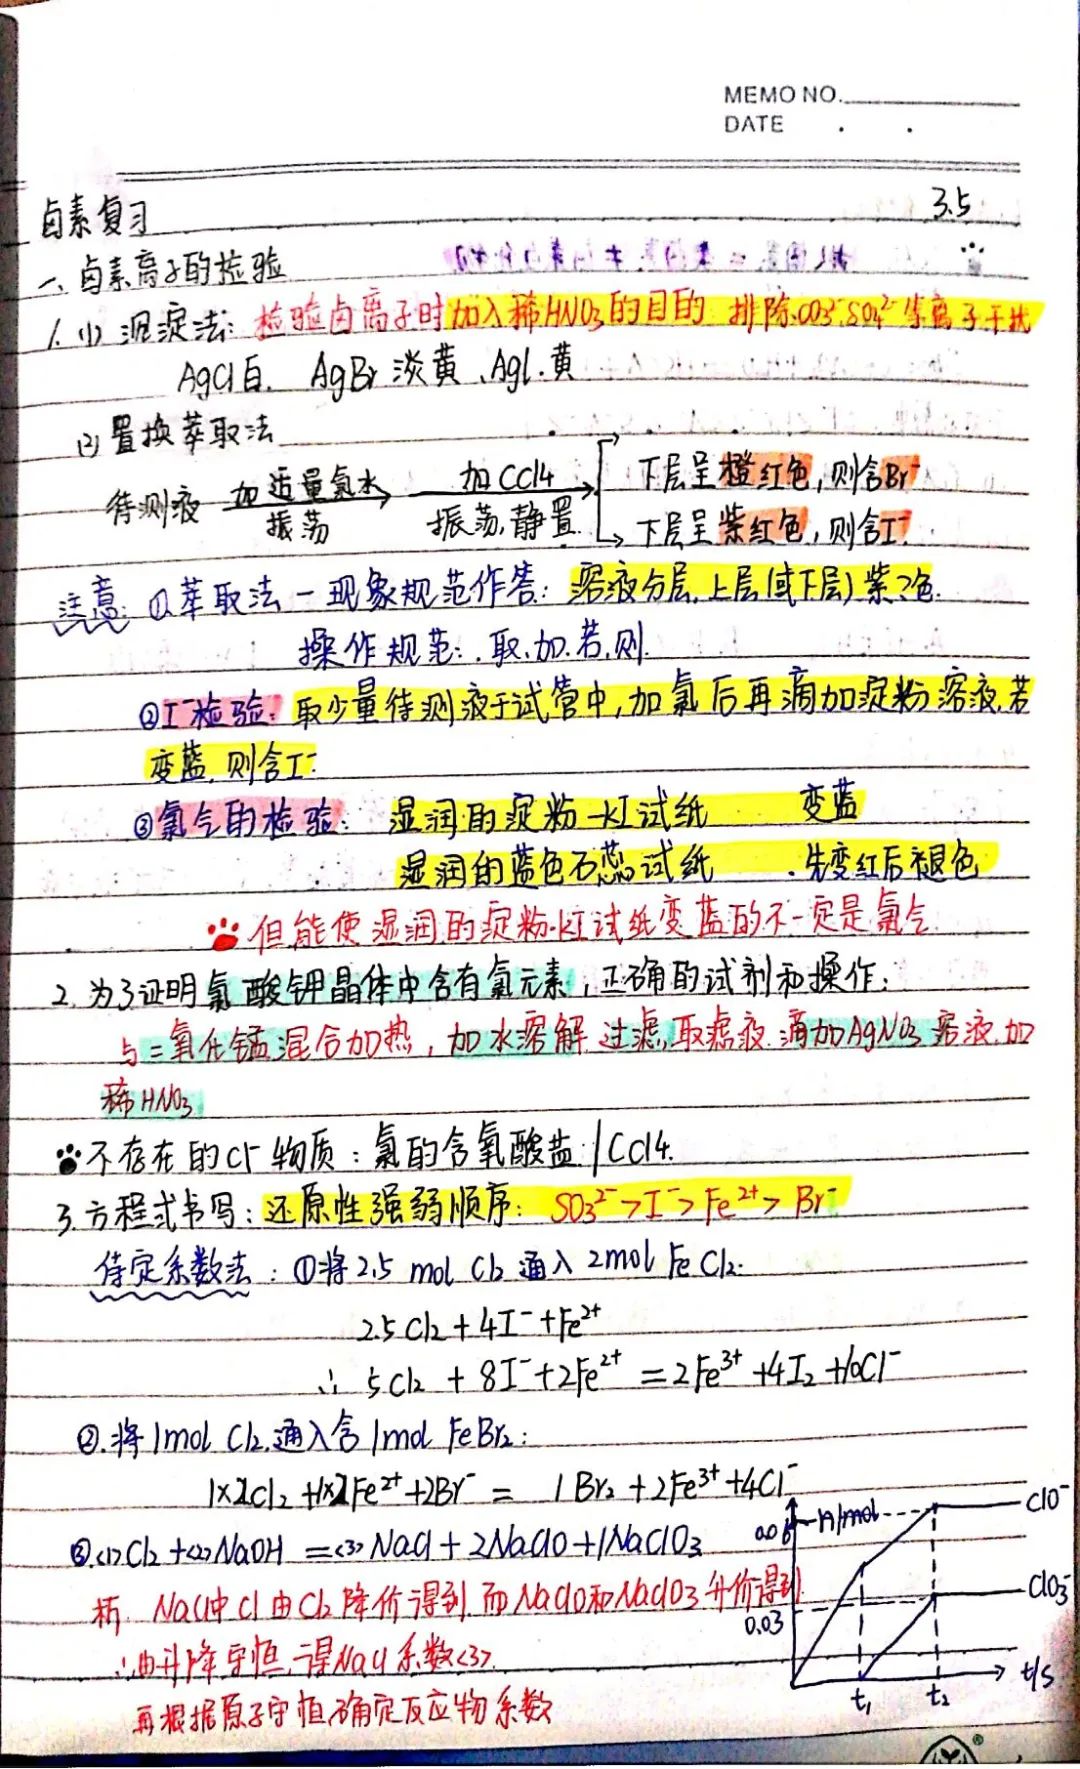 MEMO NO.
DATE . .
卤素复习 3.5
一、卤素离子的检验
1. (1) 沉淀法: 检验卤离子时加入稀HNO3的目的 排除CO3²⁻.SO4²⁻等离子干扰
AgCl白. AgBr 淡黄、AgI.黄
(2) 置换萃取法
待测液 加适量氯水 振荡 加CCl4 振荡,静置
下层呈橙红色,则含Br⁻
下层呈紫红色,则含I⁻.
注意: ①萃取法-现象规范作答: 溶液分层,上层(或下层)紫色.
操作规范: 取.加.若.则.
②I⁻检验: 取少量待测液于试管中,加氯后再滴加淀粉溶液,若
变蓝,则含I⁻
③氯气的检验: 湿润的淀粉-KI试纸 变蓝
湿润的蓝色石蕊试纸 .先变红后褪色
但能使湿润的淀粉.KI试纸变蓝的不一定是氯气
2. 为了证明氯酸钾晶体中含有氯元素,正确的试剂和操作:
与二氧化锰混合加热,加水溶解.过滤,取滤液.滴加AgNO3溶液,加
稀HNO3
不存在的Cl⁻物质:氯的含氧酸盐/CCl4.
3. 方程式书写: 还原性强弱顺序: SO3²⁻>I⁻>Fe²⁺>Br⁻
待定系数法: ①将2.5 mol Cl2 通入 2mol FeCl2.
2.5Cl2+4I⁻+Fe²⁺
∴ 5Cl2 + 8I⁻+2Fe²⁺ =2Fe³⁺+4I2+10Cl⁻
②.将1mol Cl2.通入含1mol FeBr2:
1×2Cl2+1×2Fe²⁺+2Br⁻ = 1Br2+2Fe³⁺+4Cl⁻
③<1>Cl2+<2>NaOH =<3>NaCl+2NaClO+1NaClO3
析. NaCl中Cl由Cl2降价得到.而NaClO和NaClO3升价得到.
∴由升降守恒.得NaCl系数<3>.
再根据原子守恒,确定反应物系数
n/mol
0.06
0.03
ClO⁻
ClO3⁻
t1 t2 t/s